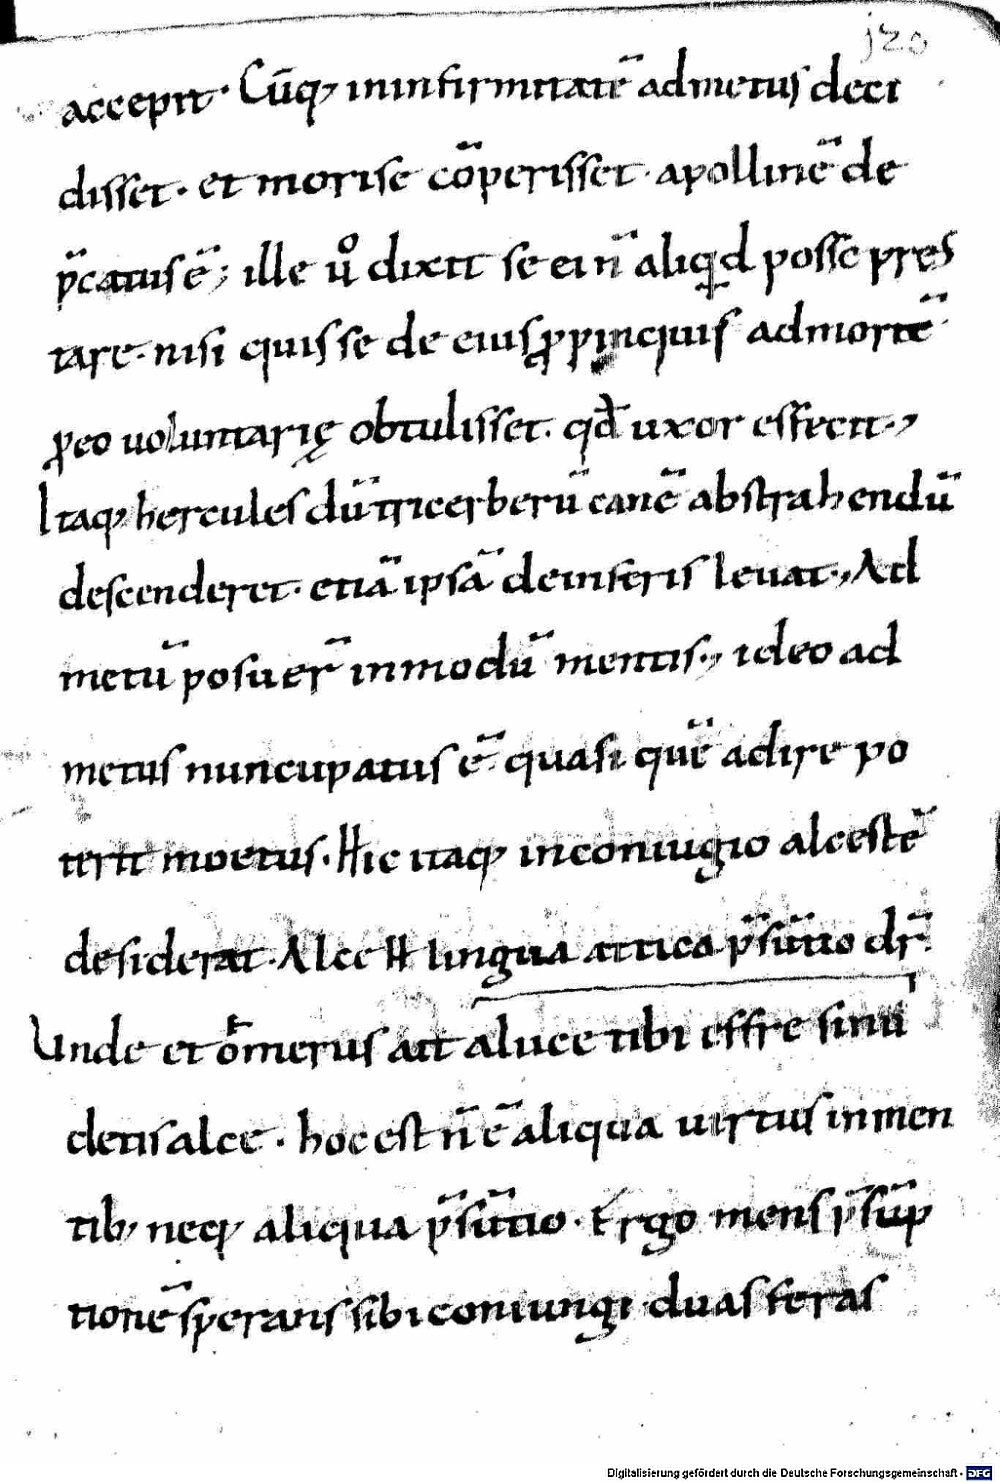 j20
accepit. Cūq; in infirmitatē admetus deci
disset. et morise cōperisset. apollinē de
p̄catus ē; ille ů dixit se ei n̄ aliqd posse pres
tare. nisi quis se de eius ꝓpinquis ad mortē
ꝓ eo uoluntarię obtulisset. qđ uxor effecit.,
Itaq; hercules dū tricerberū canē abstrahendū
descenderet. etiā ipsā de inferis leuat., Ad
metū posuer̄ in modū mentis., ideo ad
metus nuncupatus ē quasi quē adire po
terit moetus. Hic itaq; in coniugio alcestē
desiderat. Alce ħ lingua attica p̄sūtio dr̄.
Unde et omerus ait aluce tibi effre sinū
detis alce. hoc est n̄ ē aliqua uirtus in men
tib; neq; aliqua p̄sūtio. Ergo mens p̄sūp
tionē sperans sibi coniungi duas feras
Digitalisierung gefördert durch die Deutsche Forschungsgemeinschaft - DFG